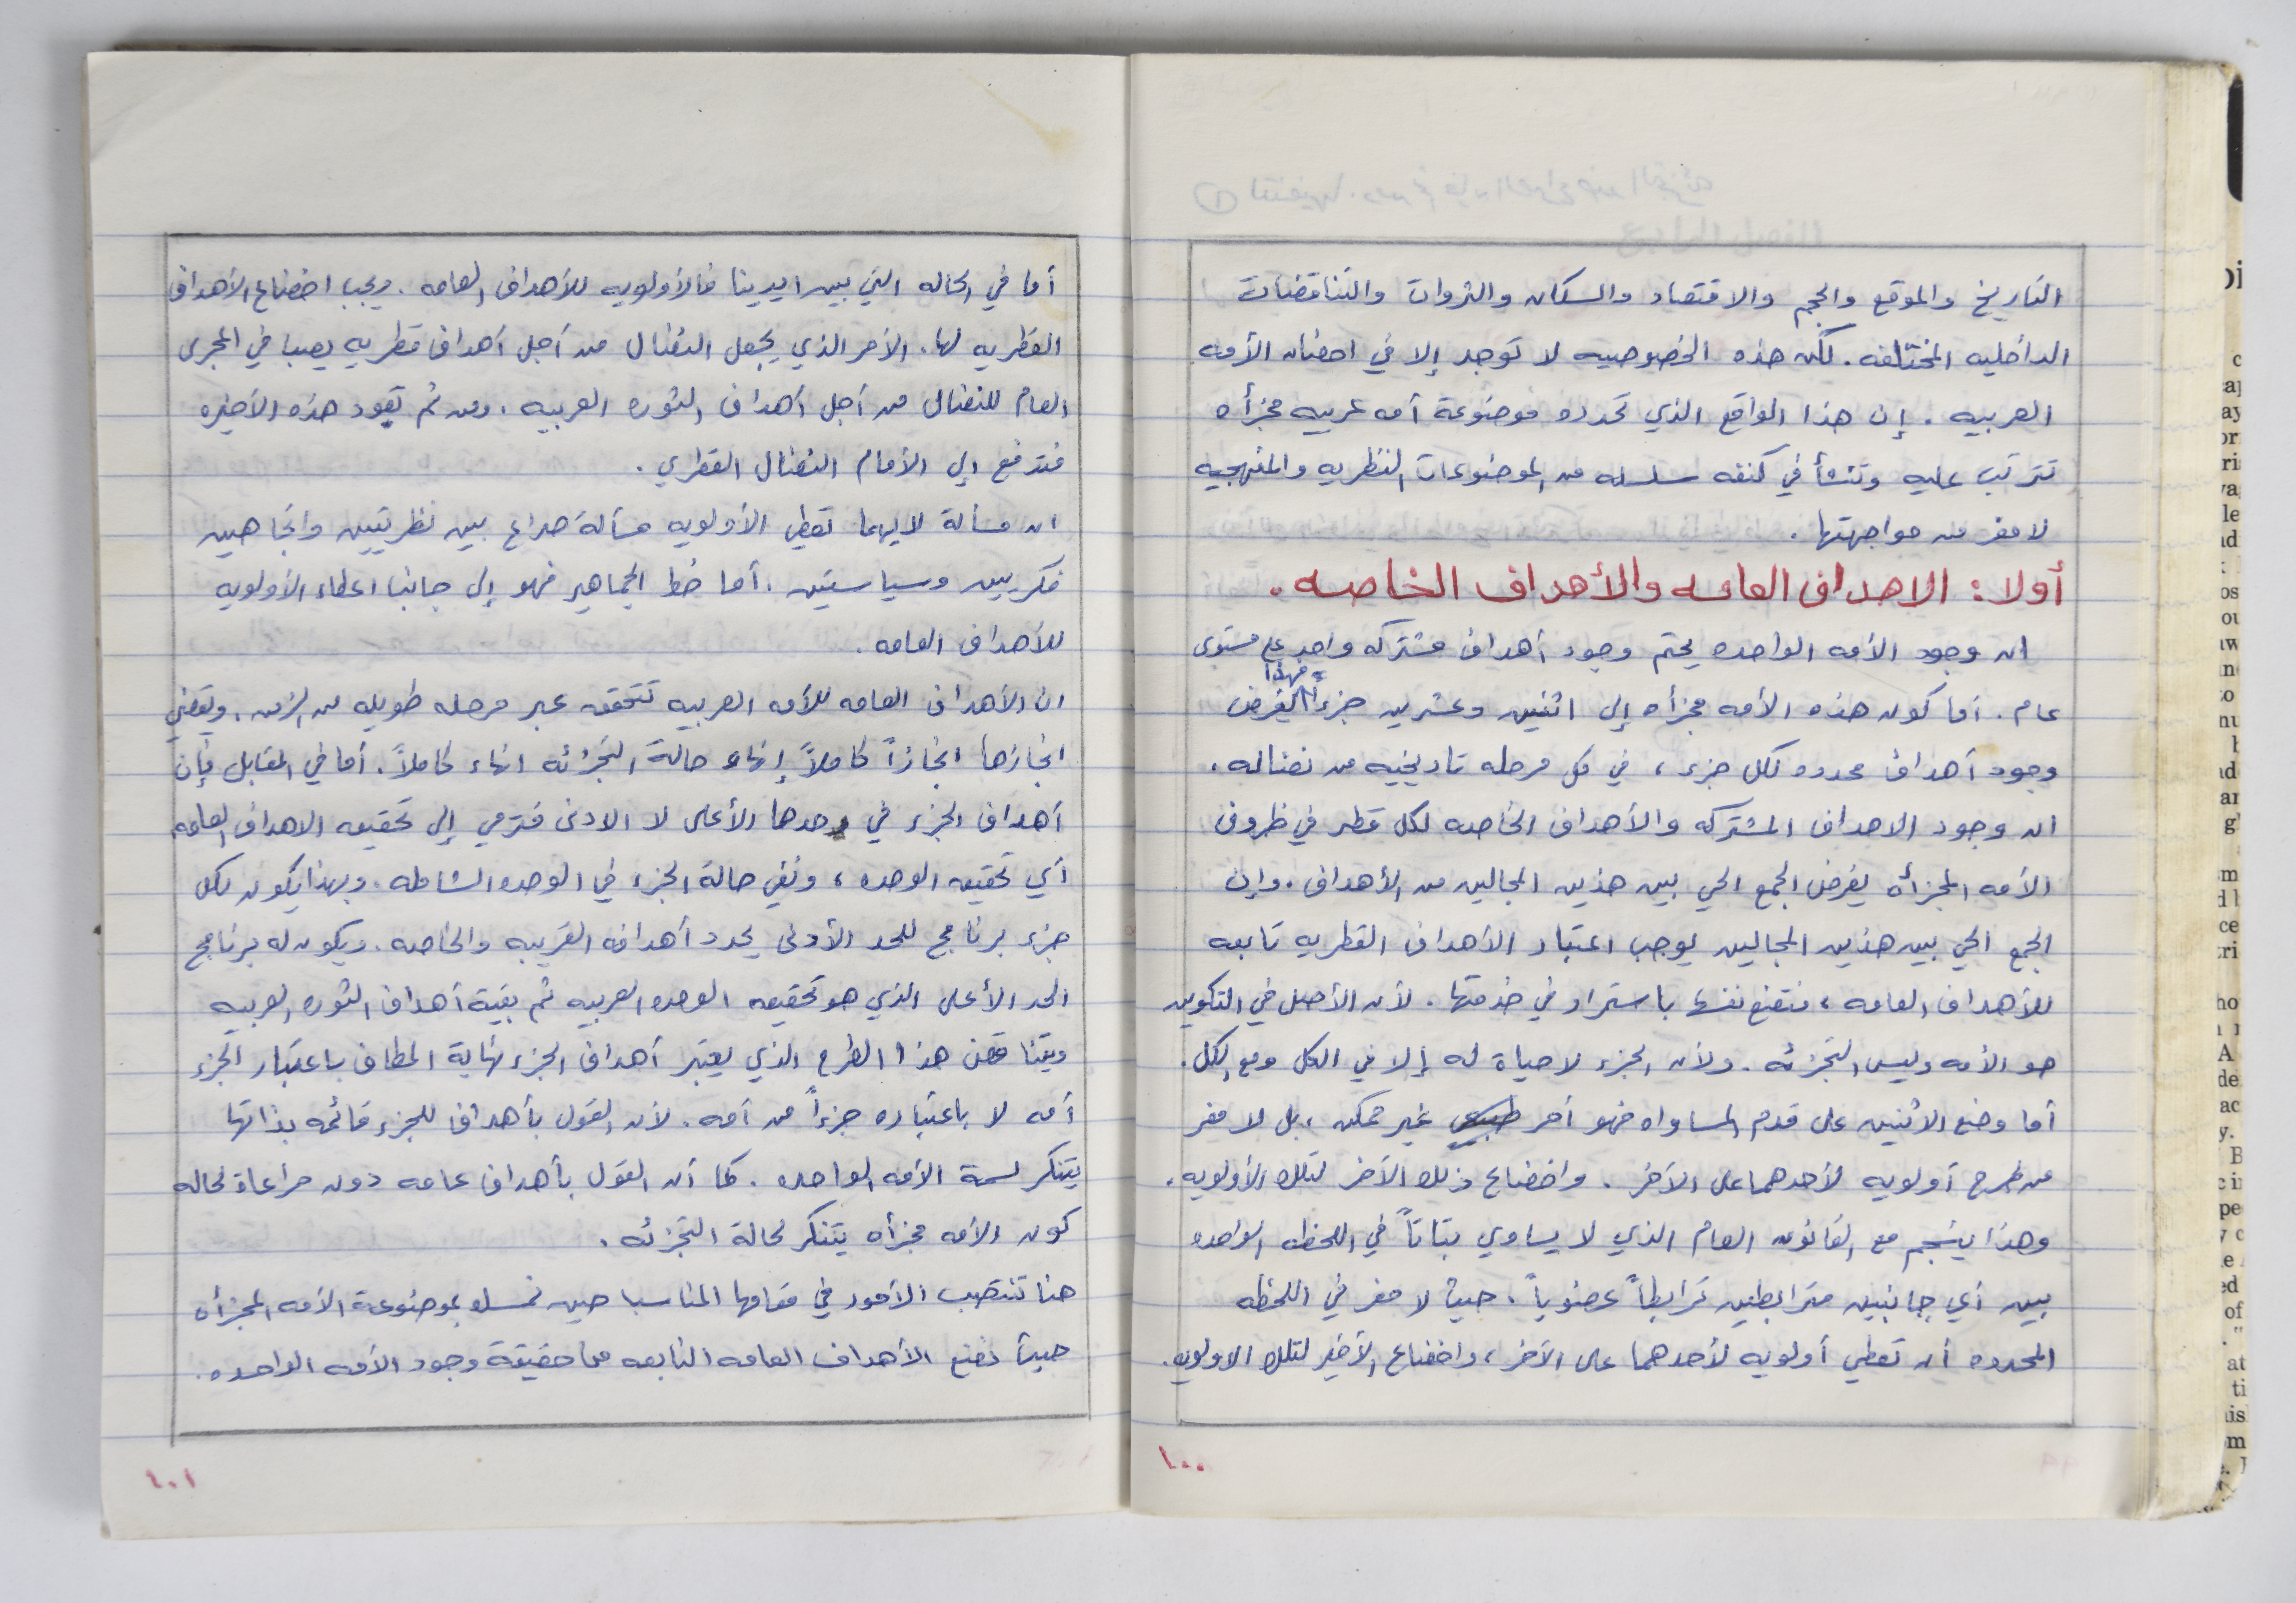 التاريخ والموقع والحجم والاقتصاد والسكان والثروات والتناقضات
الداخليه المختلفه. لكن هذه الخصوصيه لا توجد إلا في احضان الأمه
العربيه. إن هذا الواقع الذي تحدده موضوعة أمه عربيه مجزأه
تترتب عليه وتنشأ في كنفه سلسله من الموضوعات النظريه والمنهجيه
لا مفر من مواجهتها.
أولا: الاهداف العامه والأهداف الخاصه.
ان وجود الأمه الواحده يحتم وجود أهداف مشتركه واحده على مستوى
عام. أما كون هذه الأمه مجزأه إلى اثنين وعشرين جزءاً فهذا يفرض
وجود أهداف محدده لكل جزء، في كل مرحله تاريخيه من نضاله.
ان وجود الاهداف المشتركه والأهداف الخاصه لكل قطر في ظروف
الأمه المجزأه يفرض الجمع الحي بين هذين المجالين من الأهداف. وإن
الجمع الحي بين هذين المجالين يوجب اعتبار الأهداف القطريه تابعه
للأهداف العامه، فتضع نفسها باستمرار في خدمتها. لأن الأصل في التكوين
هو الأمه وليس التجزئه. ولأن الجزء لا حياة له إلا في الكل ومع الكل.
أما وضع الاثنين على قدم المساواه فهو أمر غير ممكن، بل لا مفر
من طرح أولويه لأحدهما على الآخر. واخضاع ذلك الآخر لتلك الأولويه.
وهذا ينسجم مع القانون العام الذي لا يساوي بتاتاً في اللحظه الواحده
بين أي جانبين مترابطين ترابطاً عضوياً، حيث لا مفر في اللحظه
المحدده أن تعطي أولويه لأحدهما على الآخر، واخضاع الأخير لتلك الاولويه.
١٠٠
أما في الحاله التي بين ايدينا فالأولويه للأهداف العامه. ويجب اخضاع الأهداف
القطريه لها. الأمر الذي يجعل النضال من أجل أهداف قطريه يصب في المجرى
العام للنضال من أجل أهداف الثوره العربيه. ومن ثم تعود هذه الأخيره
فتدفع إلى الأمام النضال القطري.
ان مسألة لايهما تعطي الأولويه مسألة صراع بين نظريتين واتجاهين
فكريين وسياستين. أما خط الجماهير فهو إلى جانب اعطاء الأولويه
للأهداف العامه.
ان الأهداف العامه للأمه العربيه تتحقق عبر مرحله طويله من الزمن. ويقتضي
انجازها انجازاً كاملاً إنهاء حالة التجزئه انهاء كاملاً. أما في المقابل فإن
أهداف الجزء في حدها الأعلى لا الادنى فترمي إلى تحقيق الاهداف العامه
أي تحقيق الوحده، ونفي حالة الجزء في الوحده الشامله. وبهذا يكون لكل
جزء برنامج للحد الأدنى يحدد أهدافه القريبه والخاصه. ويكون له برنامج
الحد الأعلى الذي هو تحقيق الوحده العربيه ثم بقية أهداف الثوره العربيه
ويتناقض هذا الطرح الذي يعتبر أهداف الجزء نهاية المطاف باعتبار الجزء
أمه لا باعتباره جزءاً من أمه. لأن القول بأهداف للجزء قائمه بذاتها
يتنكر لسمة الأمه الواحده. كما أن القول بأهداف عامه دون مراعاة لحاله
كون الأمه مجزأه يتنكر لحالة التجزئه.
هنا تنتصب الأمور في مقامها المناسب حين نمسك بموضوعة الأمه المجزأه
حيث نضع الأهداف العامه النابعه من حقيقة وجود الأمه الواحده.
١٠١